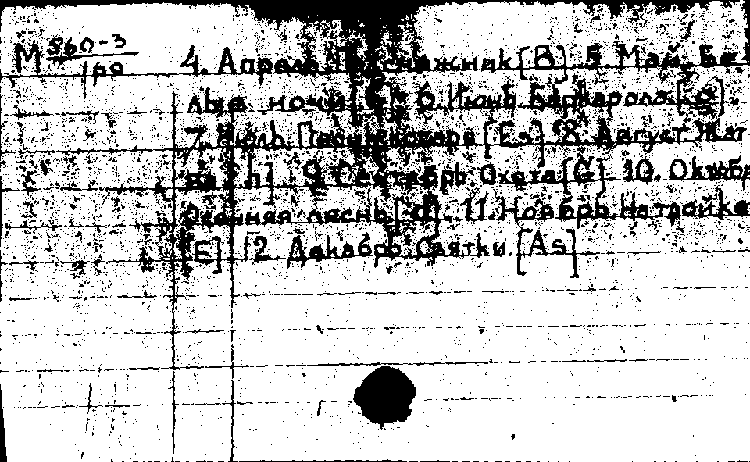 М 560-3 4. Апрель. Подснежник [B] 5. Май. Бе-
189 лые ночи [G] 6. Июнь. Баркарола [g].
7. Июль. Песнь косаря [Es] 8. Август. Жат-
ва [h]. 9. Сентябрь. Охота [G] 10. Октябрь
Осенняя песнь [d]. 11. Ноябрь. На тройке
[E] 12. Декабрь. Святки. [As]